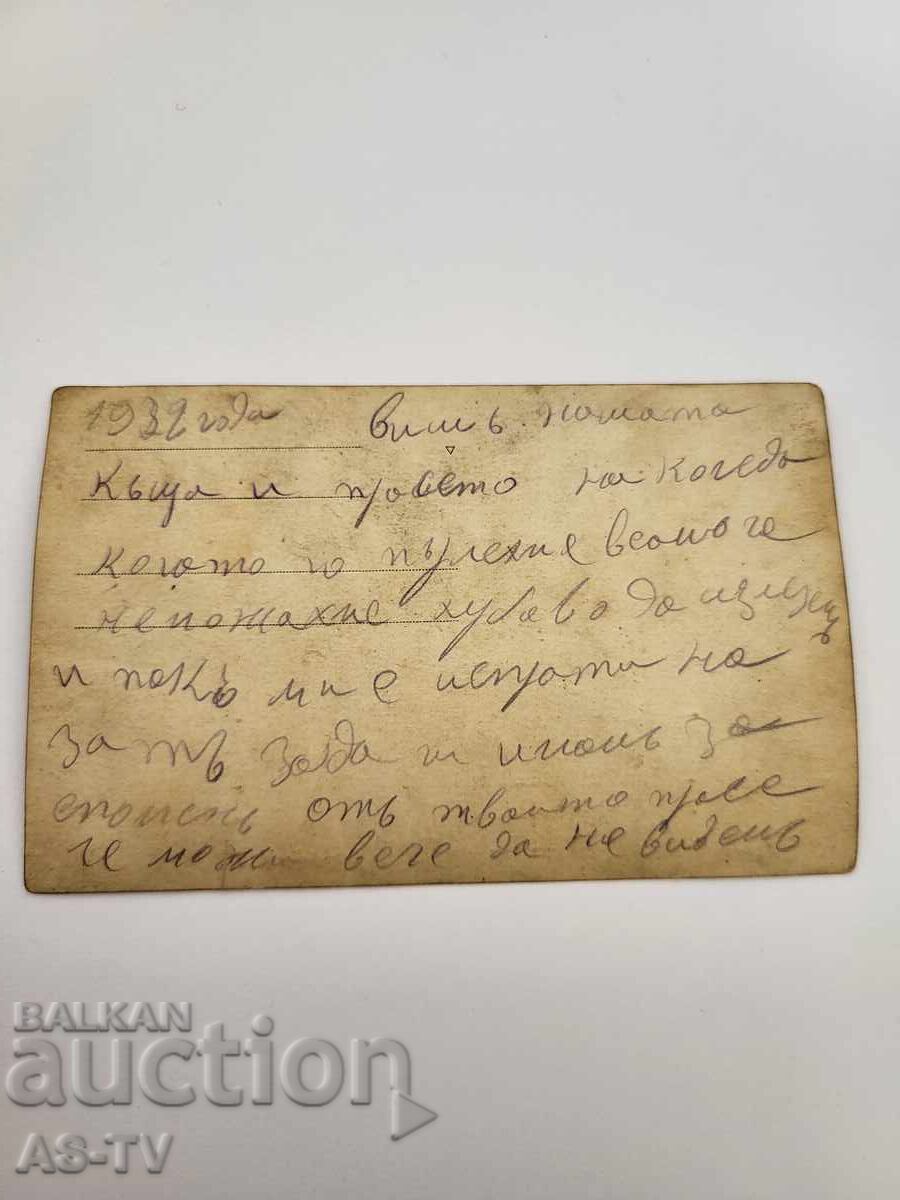 1932 года вишъ нашата
къща и прасето на Когеда
когато го пулехме веомоге
неможахме хубаво да излезец
и пакъ ми е испрати на
затъ зада ги имашъ за
споменъ отъ твоито прасе
че може вече да не видешъ
BALKAN
auction
AS-TV